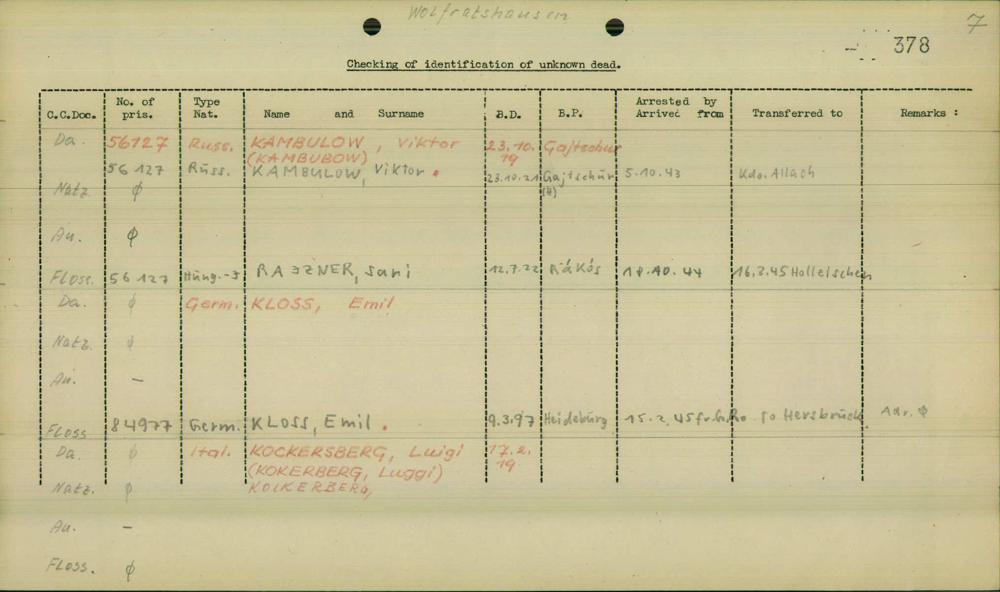 Wolfratshausen
7
378
Checking of identification of unknown dead.
C.C.Doc. No. of pris. Type Nat. Name and Surname B.D. B.P. Arrested by Arrived from Transferred to Remarks :
Da. 56127 Russ. KAMBULOW, Viktor 23.10.19 Gajtschur
(KAMBUBOW)
56127 Russ. KAMBULOW, Viktor. 23.10.21 Gajtschur (4) 5.10.43 Kdo. Allach
Natz ϕ
Au. ϕ
Floss. 56127 Hung.-J RAJZNER, Sani 12.7.22 Rákós 18.10.44 16.2.45 Holleischen
Da. ϕ Germ. KLOSS, Emil
Natz. ϕ
Au. —
Floss 84977 Germ. KLOSS, Emil. 9.3.97 Heideburg 15.2.45 fr. G.Ro. to Hersbruck Adr. ϕ
Da. ϕ Ital. KOCKERSBERG, Luigi 17.2.19
(KOKERBERG, Luggi)
Natz. ϕ KOLKERBERG,
Au. —
Floss. ϕ